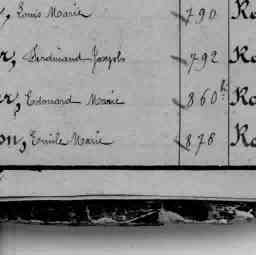 , Louis Marie 790 Ro
r, Ferdinand Joseph 792 Ro
er, Edouard Marie 860 b Ro
on, Emile Marie 878 Ro